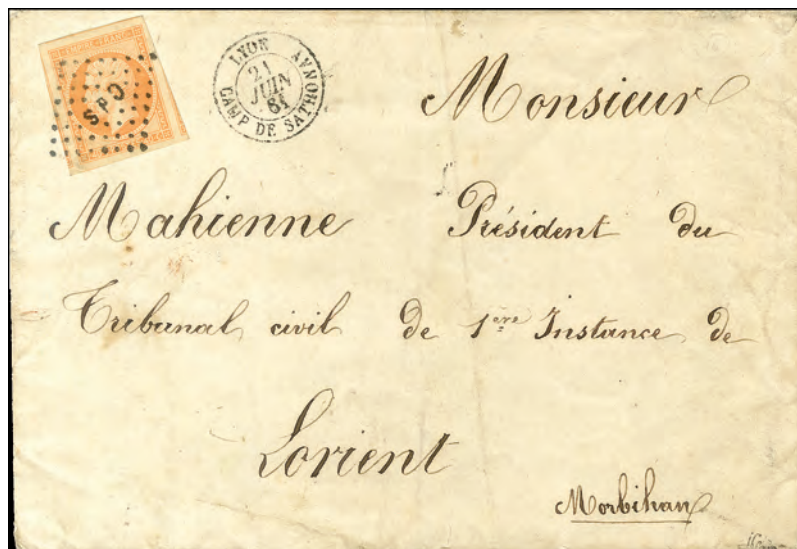 EMPIRE FRANC
CdS
LYON
21
JUIN
61
CAMP DE SATHONAY
Monsieur
Mahienne Président du
Tribunal civil de 1ère Instance de
Lorient
Morbihan